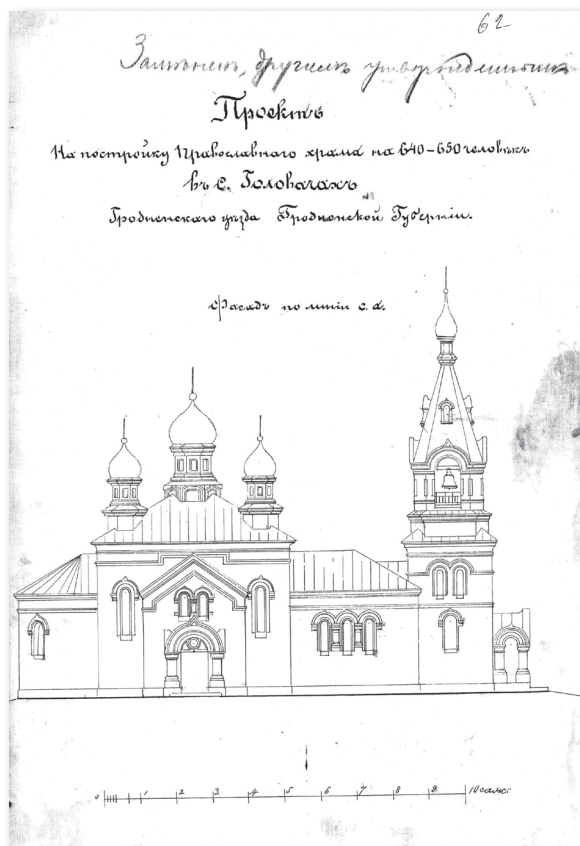 62
Замѣненъ другимъ
Проектъ
На постройку Православнаго храма на 640-650 человѣкъ
въ с. Головачахъ
Гродненскаго уѣзда Гродненской Губерніи.
Фасадъ по линіи c.d.
0 1 2 3 4 5 6 7 8 9 10 саже